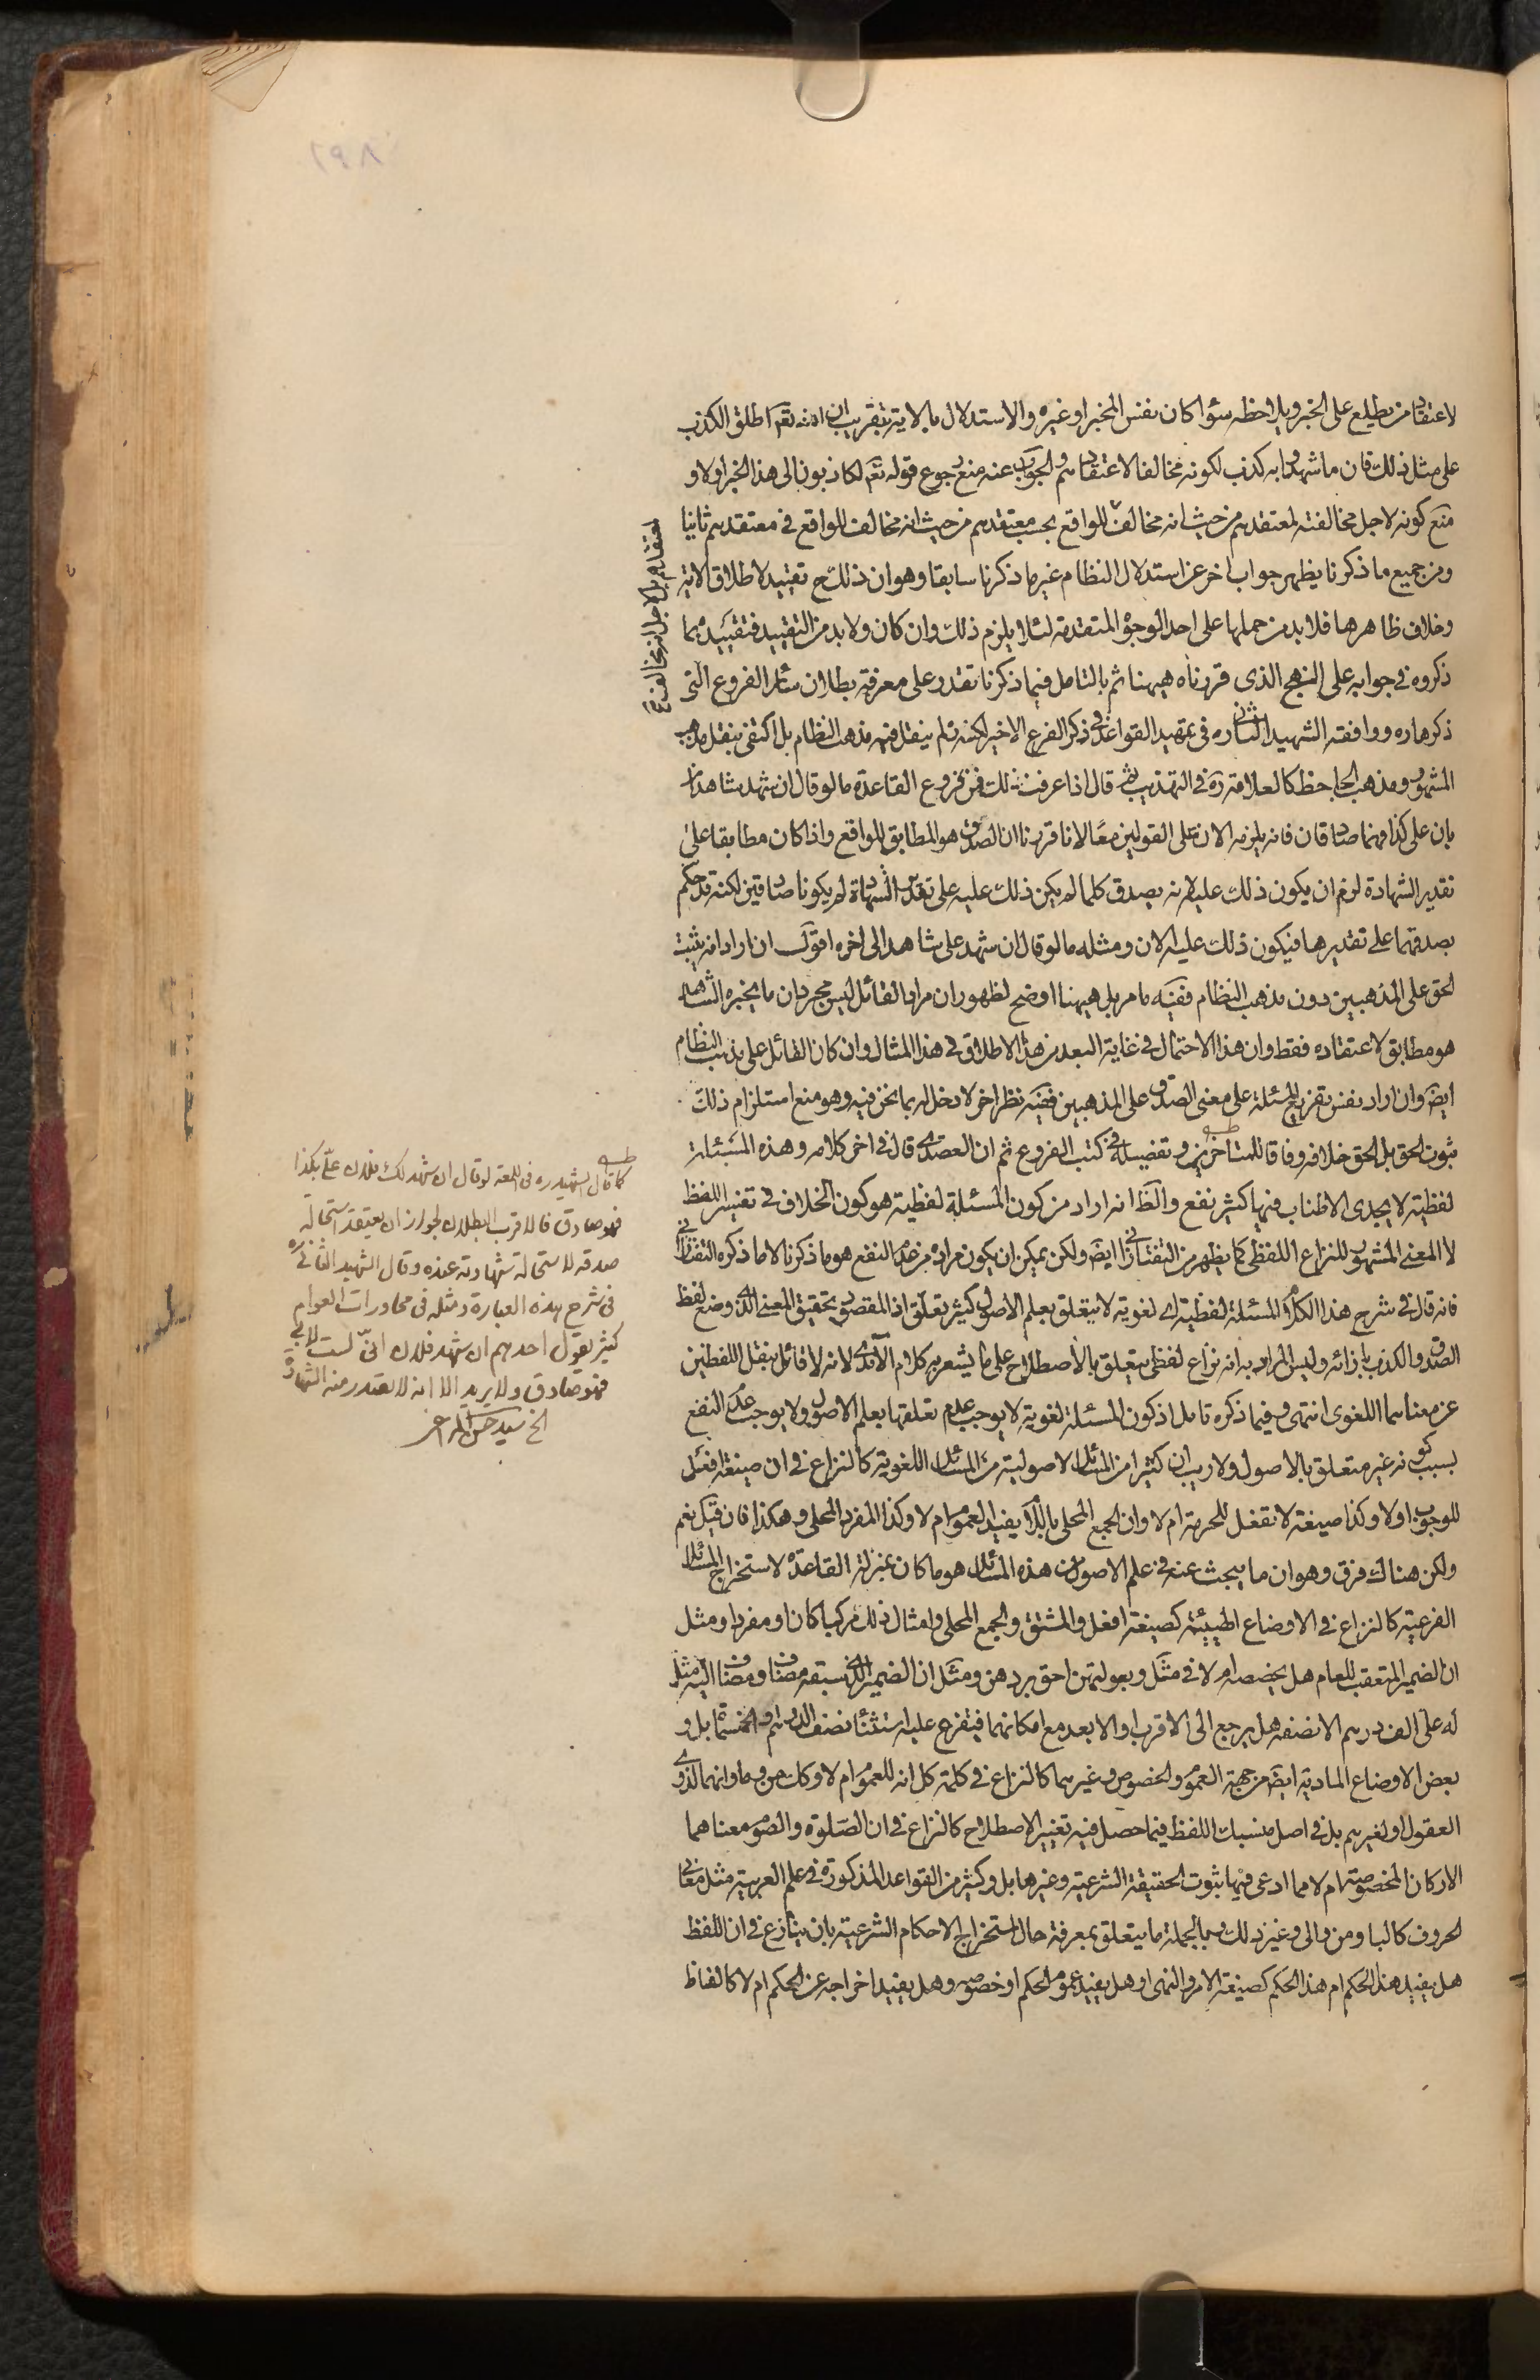 لاعتقاد من يطلع على الخبر ويلاحظه سواء كان نفس المخبر او غيره والاستدلال بالاية بتقريب ان الله تعم اطلق الكذب
على مثل ذلك فان ما شهدوا به كذب لكونه مخالفا لاعتقادهم والجواب عنه منع رجوع قوله تعم لكاذبون الى هذا الخبر اولا و
منع كونه لاجل مخالفته لمعتقدهم من حيث انه مخالف للواقع بحسب معتقدهم من حيث انه مخالف للواقع في معتقدهم ثانيا
ومن جميع ما ذكرنا يظهر جواب اخر عن استدلال النظام غير ما ذكرنا سابقا وهو ان ذلك ح تقييد لاطلاق الاية
وخلاف ظاهرها فلا بد من حملها على احد الوجوه المتقدمة لئلا يلزم ذلك وان كان ولا بد من التقييد فتقييده بما
ذكروه في جوابه على النهج الذي قررناه هيهنا ثم بالتامل فيما ذكرنا تقدر على معرفة بطلان سائر الفروع التي
ذكرها ره ووافقه الشهيد الثاني ره في تمهيد القواعد في ذكر الفرع الاخير لكنه ره لم ينقل فيه مذهب النظام بل اكتفى بنقل مذهب
المشهور ومذهب الجاحظ كالعلامة ره في التهذيب قال اذا عرفت ذلك فمن فروع القاعدة ما لو قال ان شهد شاهدان
بان على كذا فهما صادقان فانه يلزمه الان على القولين معا لانا قررنا ان الصدق هو المطابق للواقع واذا كان مطابقا على
تقدير الشهادة لزم ان يكون ذلك عليه لانه يصدق كلما لم يكن ذلك عليه على تقدير الشهادة لم يكونا صادقين لكنه قد حكم
بصدقهما على تقديرها فيكون ذلك عليه الان ومثله ما لو قال ان شهد على شاهد الى اخره اقول ان اراد انه يثبت
الحق على المذهبين دون مذهب النظام ففيه ما مر بل هيهنا اوضح لظهور ان مراد القائل ليس مجرد ان ما يخبره الشاهد
هو مطابق لاعتقاده فقط وان هذا الاحتمال في غاية البعد من هذا الاطلاق في هذا المثال وان كان القائل على مذهب النظام
ايض وان اراد نفس تفريع المسئلة على معنى الصدق على المذهبين ففيه نظر اخر لا دخل له بما نحن فيه وهو منع استلزام ذلك
ثبوت الحق بل الحق خلافه وفاقا للمتاخرين وتفصيله في كتب الفروع ثم ان العضدي قال في اخر كلامه وهذه المسئلة
لفظية لا يجدي الاطناب فيها كثير نفع والظ انه اراد من كون المسئلة لفظية هو كون الخلاف في تفسير اللفظ
لا المعنى المشهور للنزاع اللفظي كما يظهر من التفتازاني ايض ولكن يمكن ان يكون مراده من عدم النفع هو ما ذكرنا لا ما ذكره التفتازاني
فانه قال في شرح هذا الكلام المسئلة لفظية اي لغوية لا يتعلق بعلم الاصول كثير تعلق اذ المقصود تحقيق المعنى الذي وضع لفظ
الصدق والكذب بازائه وليس المراد به انه نزاع لفظي يتعلق بالاصطلاح على ما يشعر به كلام الآمدي لانه لا قائل بنقل اللفظين
عن معناهما اللغوي انتهى وفيما ذكره تامل اذ كون المسئلة لغوية لا يوجب عدم تعلقها بعلم الاصول ولا يوجب عدم النفع
بسبب كونه غير متعلق بالاصول ولا ريب ان كثيرا من المسائل الاصولية من المسائل اللغوية كالنزاع في ان صيغة افعل
للوجوب او لا وكذا صيغة لا تفعل للحرمة ام لا وان الجمع المحلى باللام يفيد العموم ام لا وكذا المفرد المحلى وهكذا فان قيل نعم
ولكن هناك فرق وهو ان ما يبحث عنه في علم الاصول من هذه المسائل هو ما كان بمنزلة القاعدة لاستخراج المسائل
الفرعية كالنزاع في الاوضاع الهيئية كصيغة افعل والمشتق والجمع المحلى وامثال ذلك مركبا كان او مفردا ومثل
ان الضمير المتعقب للعام هل يخصصه ام لا في مثل وبعولتهن احق بردهن ومثل ان الضمير الذي سبقه مضاف ومضاف اليه مثل
له على الف درهم الا نصفه هل يرجع الى الاقرب او الابعد مع امكانهما فيتفرع عليه استثناء نصف الدرهم او الخمسمائة بل و
بعض الاوضاع المادية ايض من جهة العموم والخصوص وغيرهما كالنزاع في كلمة كل انه للعموم ام لا وكذا من وما وانهما لذوي
العقول او لغيرهم بل في اصل منسبك اللفظ فيما حصل فيه تغيير الاصطلاح كالنزاع في ان الصلوة والصوم معناهما
الاركان المخصوصة ام لا مما ادعى فيها ثبوت الحقيقة الشرعية وغيرها بل وكثير من القواعد المذكورة في علم العربية مثل معاني
الحروف كالباء ومن والى وغير ذلك وبالجملة ما يتعلق بمعرفة حال استخراج الاحكام الشرعية بان ينازع في ان اللفظ
هل يفيد هذا الحكم ام هذا الحكم كصيغة الامر والنهي او هل يفيد عموم الحكم او خصوصه وهل يفيد اخراجه عن الحكم ام لا كالفاظ
كما قال الشهيد ره في اللمعة لو قال ان شهد لك فلان علي بكذا
فهو صادق فالاقرب البطلان لجواز ان يعتقد استحالة
صدقه لاستحالة شهادته عنده وقال الشهيد الثاني ره
في شرح هذه العبارة ومثله في محاورات العوام
كثير يقول احدهم ان شهد فلان اني لست لابي
فهو صادق ولا يريد الا انه لا يصدر منه الشهادة
الخ سيد حسن